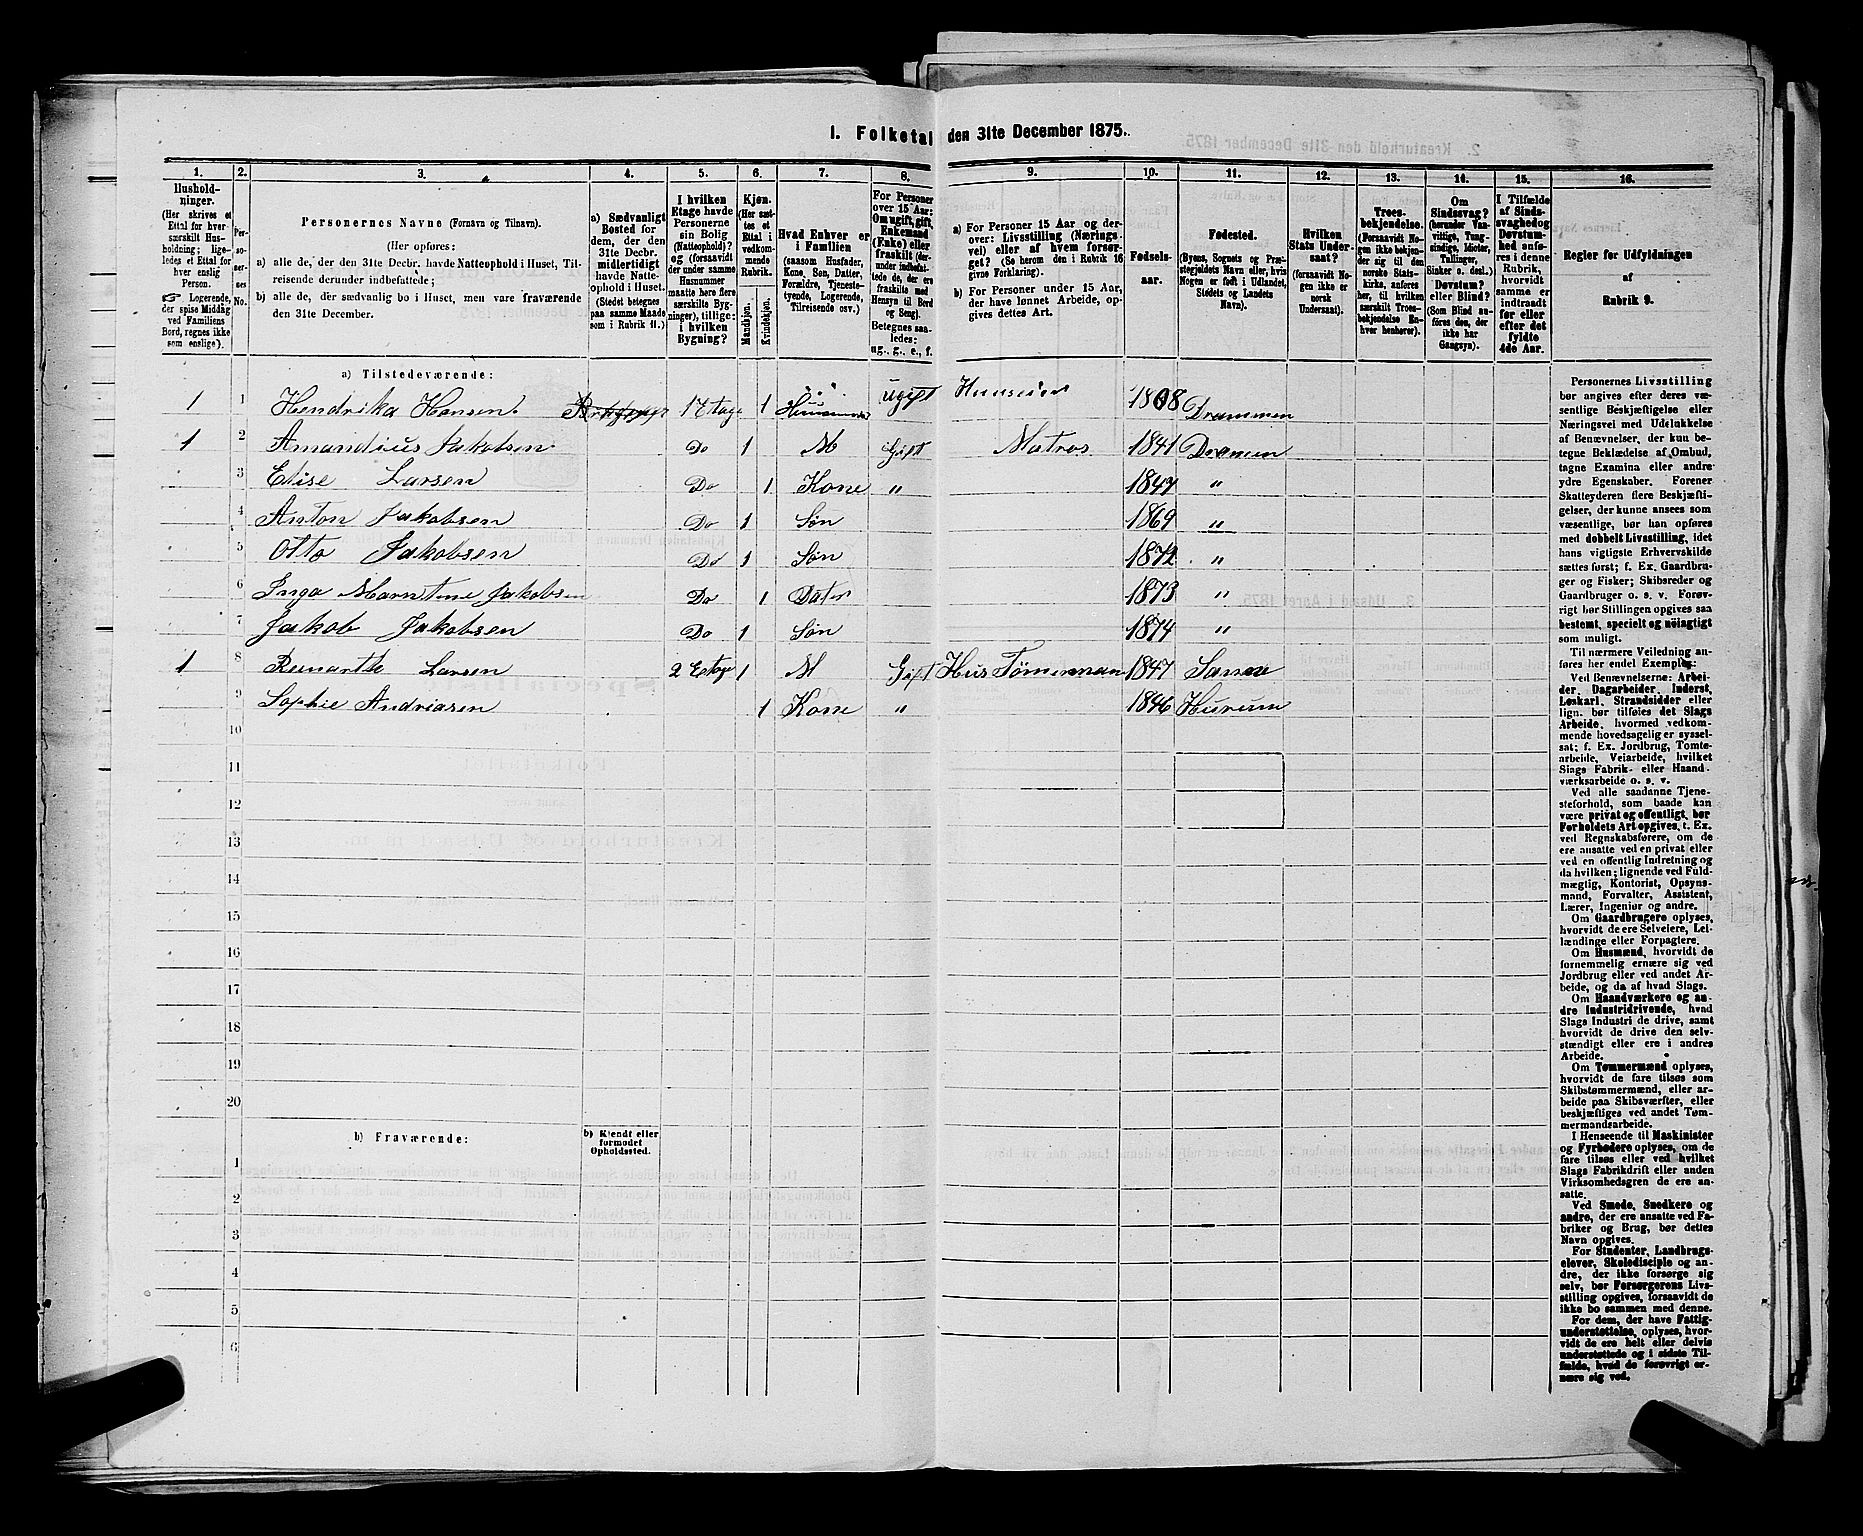 1. Folketal den 31te December 1875.
1.
2.
3.
4.
5.
6.
7.
8.
9.
10.
11.
12.
13.
14.
15.
16.
Hushold-
ninger.
(Her skrives et
Ettal for hver
særskilt Hus-
holdning; lige-
ledes et Ettal for
hver enslig
Person.
☞ Logerende,
der spise Middag
ved Familiens
Bord, regnes ikke
som enslige).
Per-
so-
ner-
nes
No.
Personernes Navne (Fornavn og Tilnavn).
(Her opføres:
a) alle de, der den 31te Decbr. havde Natteophold i Huset, Til-
reisende derunder indbefattede;
b) alle de, der sædvanlig bo i Huset, men vare fraværende
den 31te December.
a) Sædvanligt
Bosted for
dem, der den
31te Decbr.
midlertidigt
havde Natte-
ophold i Huset.
(Stedet betegnes
paa samme Maade
som i Rubrik 11.)
I hvilken
Etage havde
Personerne
sin Bolig
(Natteophold)?
og (forsaavidt
der under samme
Husnummer
maatte høre flere
særskilte Byg-
ninger), tillige:
i hvilken
Bygning?
Kjøn.
(Her sæt-
tes et
Ettal i
vedkom-
mende
Rubrik.
Mandkjøn.
Kvindekjøn.
Hvad Enhver er
i Familien
(saasom Husfader,
Kone, Søn, Datter,
Forældre, Tjeneste-
tyende, Logerende,
Tilreisende osv.)
For Personer
over 15 Aar:
Om ugift, gift,
Enkemand
(Enke) eller
fraskilt (der-
under indbefat-
tede de, der ere
fraskilte med
Hensyn til Bord
og Seng).
Betegnes saa-
ledes:
ug., g., e., f.
a) For Personer 15 Aar og der-
over: Livsstilling (Nærings-
vei) eller af hvem forsør-
get? (Se herom den i Rubrik 16
givne Forklaring).
b) For Personer under 15 Aar,
der have lønnet Arbeide, op-
gives dettes Art.
Fødsels-
aar.
Fødested.
(Byens, Sognets og Præ-
stegjeldets Navn eller, hvis
Nogen er født i Udlandet,
Stedets og Landets
Navn).
Hvilken
Stats Under-
saat?
(forsaavidt No-
gen ikke er
norsk
Undersaat).
Troes-
bekjendelse.
(Forsaavidt No-
gen ikke bekjen-
der sig til den
norske Stats-
Kirke, anføres
her, til hvilken
særskilt Troes-
bekjendelse En-
hver henhører).
Om
Sindssvag?
(herunder Van-
vittigt, Tung-
sindige, Idioter,
Tallinger,
Sinker o. desl.)
Døvstum?
eller Blind?
(Som Blind an-
føres den, der
ikke har
Gangsyn).
I Tilfælde
af Sinds-
svaghed og
Døvstum-
hed anfø-
res i denne
Rubrik,
hvorvidt
samme er
indtraadt
før eller
efter det
fyldte
4de Aar.
Regler for Udfyldningen
af
Rubrik 9.
a) Tilstedeværende:
1 1 Hendrika Hansen. 1 Etage 1 ugift 1808 Drammen
1 2 Amandius Jakobsen Do 1 M Gift Matros 1841 Dramen
3 Elise Larsen Do 1 Kone " 1847 "
4 Anton Jakobsen Do 1 Søn 1869 "
5 Otto Jakobsen Do 1 Søn 1872 "
6 Inga Marntine Jakobsen Do 1 Dater 1873 "
7 Jakob Jakobsen Do 1 Søn 1874 "
1 8 Larsen 2 Etage 1 M Gift Hus Tømerman 1847
9 Sophie Andriasen 1 Kone " 1846 Hurum
10
11
12
13
14
15
16
17
18
19
20
b) Fraværende:
b) Kjendt eller
formodet
Opholdssted.
1
2
3
4
5
6
Personernes Livsstilling
bør angives efter deres væ-
sentlige Beskjæftigelse eller
Næringsvei med Udelukkelse
af Benævnelser, der kun be-
tegne Beklædelse af Ombud,
tagne Examina eller andre
ydre Egenskaber. Forener
Skatteyderen flere Beskjæfti-
gelser, der kunne ansees som
væsentlige, bør han opføres
med dobbelt Livsstilling, idet
hans vigtigste Erhvervskilde
sættes først; f. Ex. Gaardbru-
ger og Fisker; Skibsreder og
Gaardbruger o. s. v. Forøv-
rigt bør Stillingen opgives saa
bestemt, specielt og nøiagtigt
som muligt.
Til nærmere Veiledning an-
føres her endel Exempler:
Ved Benævnelserne: Arbei-
der, Dagarbeider, Inderst,
Løskarl, Strandsidder eller
lign. bør tilføies det Slags
Arbeide, hvormed vedkom-
mende hovedsagelig er syssel-
sat; f. Ex. Jordbrug, Tomte-
arbeide, Veiarbeide, hvilket
Slags Fabrik- eller Haand-
værksarbeide o. s. v.
Ved alle saadanne Tjene-
steforhold, som baade kan
være privat og offentligt, bør
Forholdets Art opgives, t. Ex.
ved Regnskabsførere, om de
ere ansatte ved en privat eller
ved en offentlig Indretning og
da hvilken; lignende ved Fuld-
mægtig, Kontorist, Opsyns-
mand, Forvalter, Assistent,
Lærer, Ingeniør og andre.
Om Gaardbrugere oplyses,
hvorvidt de ere Selveiere, Lei-
lændinge eller Forpagtere.
Om Husmænd, hvorvidt de
fornemmelig ernære sig ved
Jordbrug eller ved andet Ar-
beide, og da af hvad Slags.
Om Haandværkere og an-
dre Industridrivende, hvad
Slags Industri de drive, samt
hvorvidt de drive den selv-
stændigt eller ere i andres
Arbeide.
Om Tømmermænd oplyses,
hvorvidt de fare tilsøs som
Skibstømmermænd, eller ar-
beide paa Skibsværfter, eller
beskjæftiges ved andet Tøm-
mermandsarbeide.
I Henseende til Maskinister
og Fyrbødere oplyses, om de
fare tilsøs eller ved hvilket
Slags Fabrikdrift eller anden
Virksomhedsgren de ere an-
satte.
Ved Smede, Snedkere og
andre, der ere ansatte ved Fa-
briker og Brug, bør dettes
Navn opgives.
For Studenter, Landbrugs-
elever, Skoledisciple og an-
dre, der ikke forsørge sig
selv, bør Forsørgerens Livs-
stilling opgives, forsaavidt de
ikke bo sammen med denne.
For dem, der have Fattig-
understøttelse, oplyses, hvor-
vidt de ere helt eller delvis
understøttede og i sidste Til-
fælde, hvad de forøvrigt er-
nære sig ved.